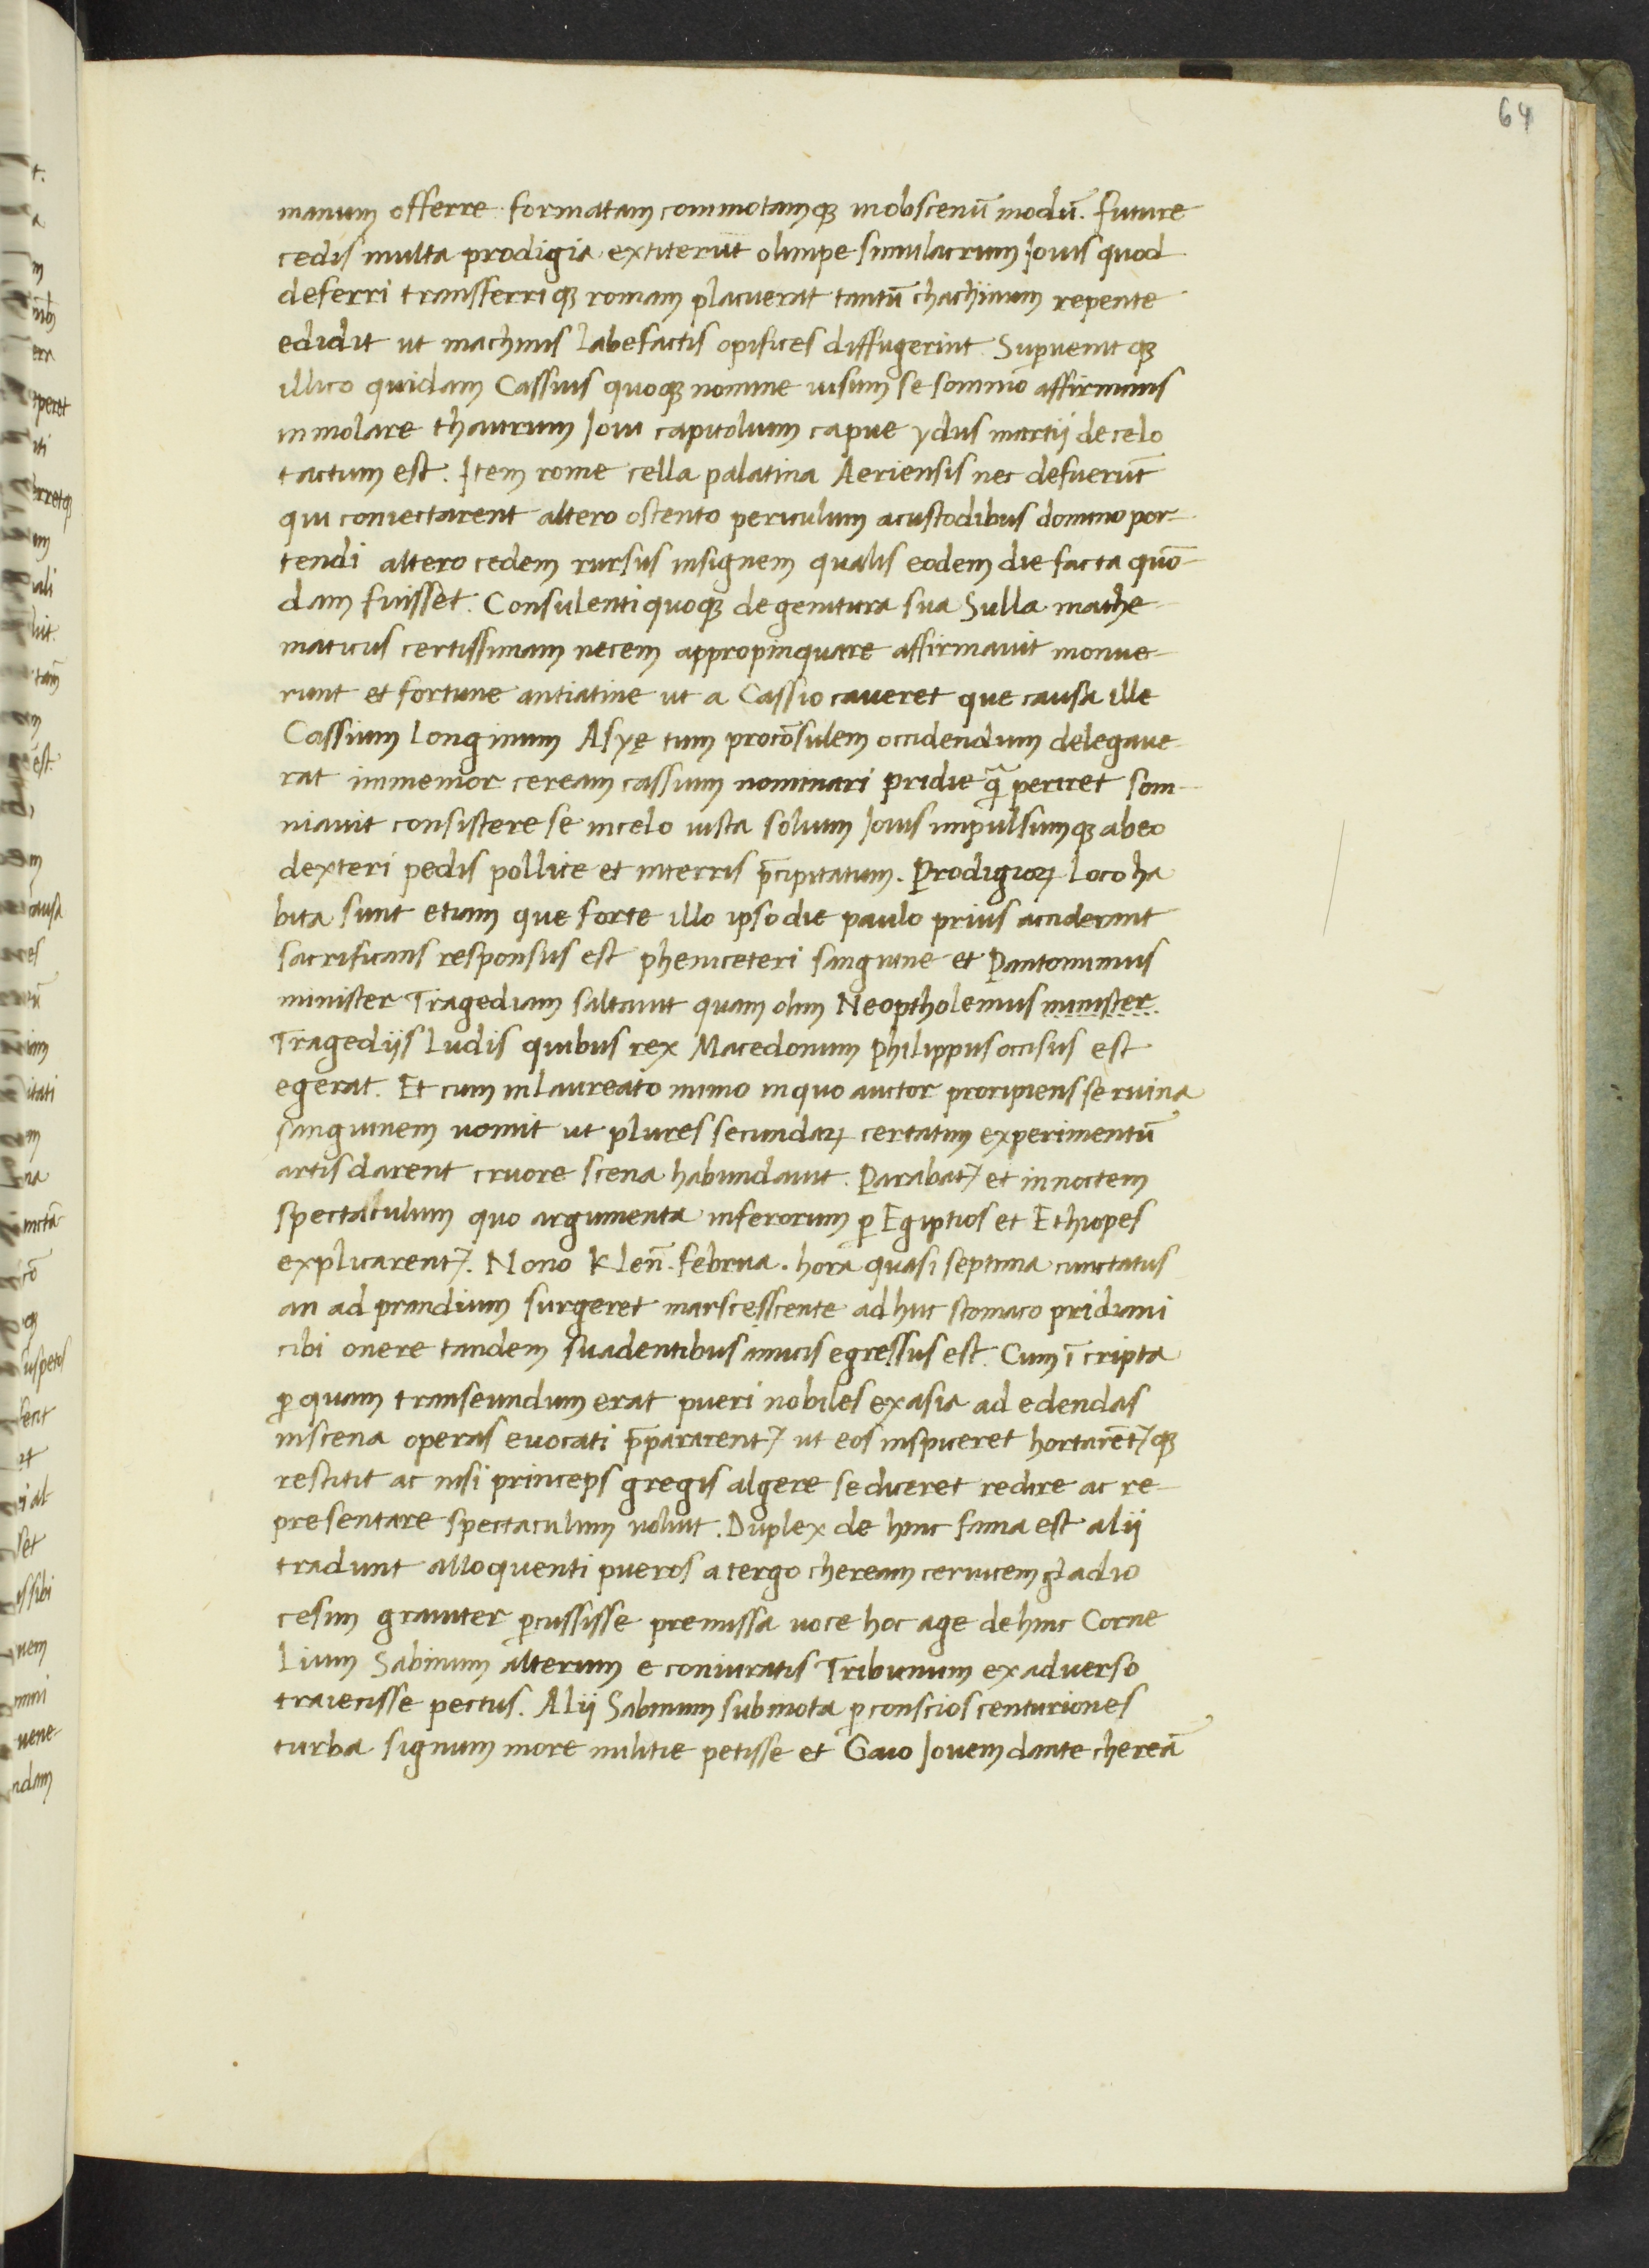 64
manum offerre formatam commotamqꝫ inobscenū modū. future
cedis multa prodigia extiterūt olimpe simulacrum Jouis quod
deferri transferriqꝫ romam placuerat tantū chachinum repente
edidit ut machinis labefactis opifices diffugerint. Superuenitqꝫ
illico quidam Cassius quoqꝫ nomine iusum se somnio affirmans
inmolare thaurum Joui capitolium capue ydus martij de celo
tactum est. Item rome cella palatina Aeriensis nec defuerūt
qui coniectarent altero ostento periculum acustodibus domino por-
tendi altero cedem rursus insignem qualis eodem die facta quō-
dam fuisset. Consulenti quoqꝫ de genitura sua Sulla mathe-
maticus certissimam necem appropinquare affirmauit monue-
runt et fortune antiatine ut a Cassio caueret que causa ille
Cassium Longinum Asyę tum procōsulem occidendum delegaue-
rat immemor ceream cassium nominari pridie q̄ periret som-
niauit consistere se incelo iusta solium Jouis impulsumqꝫ abeo
dexteri pedis pollice et interris p̄cipitatum. Prodigioꝝ loco ha
bita sunt etiam que forte illo ipso die paulo prius acciderant
sacrificans responsus est pheniceteri sanguine et Pantomimus
minister Tragediam saltauit quam olim Neoptholemus minister
Tragediis Ludis quibus rex Macedonum Philippus occisus est
egerat. Et cum inLaureato mimo inquo auctor proripiens se ruina
sanguinem uomit ut plures secundaꝝ certatim experimentū
artis darent cruore scena habundauit. Parabat᷑ et innoctem
spectaculum quo argumenta inferorum ꝑ Egiptios et Ethiopes
explicarent᷑. Nono Klen̄. februa. hora quasi septima cunctatus
an ad prandium surgeret marscesscente adhuc stomaco pridiani
cibi onere tandem suadentibus amicis egressus est. Cum ī cripta
ꝑ quam transeundum erat pueri nobiles exasia ad edendas
inscena operas euocati p̄pararent᷑ ut eos inspiceret hortarēt᷑qꝫ
restitit ac nisi princeps gregis algere se diceret redire ac re-
presentare spectaculum uoluit. Duplex de hinc fama est alij
tradunt alloquenti pueros a tergo cheream ceruicem gladio
cesim grauiter ꝑcussisse premissa uoce hoc age dehinc Corne
Lium Sabinum alterum e coniuratis Tribunum exaduerso
traiecisse pectus. Alij Sabinum submota ꝑ conscios centuriones
turba signum more militie petisse et Gaio Jouem dante chereā